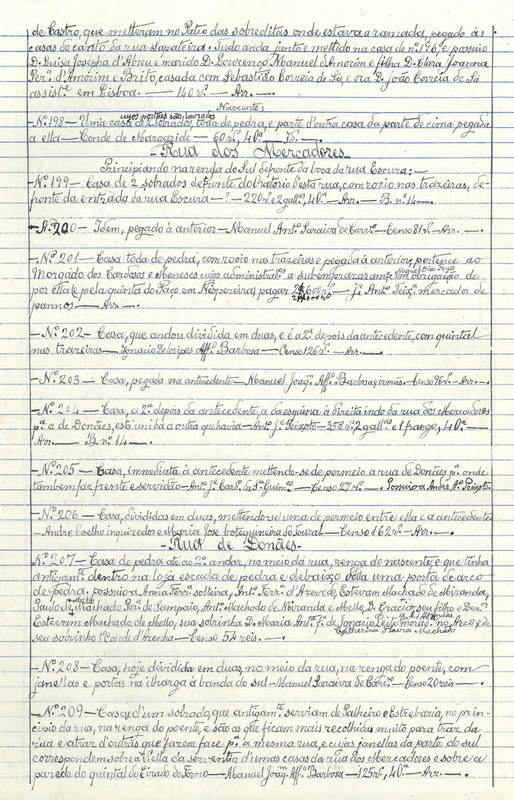 de Castro, que metteram no Patio das sobreditas onde estava a ramada, pegado ás
casas do canto da rua Sapateira. Tudo anda junto e mettido na casa do nº 196, e possuio
D. Luisa Josepha d'Abreu e marido D. Lourenço Manoel d'Amorim e filha D. Clara Joanna
Per.ª d'Amorim e Brito, casada com Sebastião Correia de Sá, e ora D. João Correia de Sá
assist.e em Lisboa. — 140 rs. — Arr.
Nascente:
— Nº 198 — Uma casa de 2 sobrados, toda de pedra, e parte d'outra casa da parte de cima, pegada
cujos portaes são lavrados
a ella — Conde de Margaride — 60 rs., 4 0.ª
— Rua dos Mercadores —
Principiando na renga do Sul defronte da boca da rua Escura: —
— Nº 199 — Casa de 2 sobrados defronte do Oratorio desta rua, com rocio nas trazeiras, de-
fronte da entrada da rua Escura — — 220 rs. e 2 gall.as, 4 0.ª — Arr. — B. nº 14 — .
— Nº 200 — Idem, pegado á anterior — Manoel Ant.º Saraiva de Carv.º — Censo 81 rs. — Arr. — .
— Nº 201 — Casa toda de pedra, com rocio nas trazeiras e pegada á anterior, pertence ao
Morgado dos Cardosos e Menezes cujos administral.s a sub-emprazaram com obrigação de
por ella (e pela quinta do Paço em Nespereira) pagar — J.e Ant.º Teix.ª mercador de
pannos — Arr. — .
— Nº 202 — Casa, que andou dividida em duas, e é a 2ª depois da antecedente, com quintal
nas trazeiras — Ignacio Aff.º Barbosa — Censo 126 rs. — Arr. — .
— Nº 203 — Casa, pegada na antecedente — Manoel Joaq.m Aff.º Barbosa e irmãs. — Censo 96 rs. — Arr. — .
— Nº 204 — Casa, a 2ª depois da antecedente, a da esquina á direita indo da rua dos Mercadores
p.ª a de Donães, está unida a outra que havia — Ant.º J.e Peixoto — 358 rs., 2 gall.as e 1 frango, 4 0.ª —
Arr. — B. nº 14 — .
— Nº 205 — Casa, immediata á antecedente mettendo-se de permeio a rua de Donães p.ª onde
tambem faz frente e servidão — Ant.º J.e Card.º de S.ª Guim.es — Censo 27 rs. — Possuio a André J.e Peixoto.
— Nº 206 — Casa, divididas em duas, mettendo-se uma de permeio entre ella e a antecedente
— André Coelho inquiridor e Maria José botequineira do Toural — Censo 162 rs. — Arr. — .
— Rua de Donães —
— Nº 207 — Casa de pedra até ao 2º andar, no meio da rua, renga do nascente, e que tinha
antigam.te dentro na loja escada de pedra e debaixo della uma porta de arco
de pedra, possuio a Anna Ferr.ª solteira, Ant.º Ferr.ª d'Azevedo, Estevam Machado de Miranda,
Paulo de Mello Machado Per.ª de Sampaio, Ant.º Machado de Miranda e Mello, D. Gracia, seu filho e
Estevam Machado de Mello, sua sobrinha D. Maria Ant.ª f.ª de Ignacio Leite morad.or no Arco e de
Catherina Flavia Machado
seu sobrinho 1º Conde d'Azenha — Censo 54 reis. — .
— Nº 208 — Casa, hoje dividida em duas, no meio da rua, na renga do poente, com
janellas e portas na ilharga á banda do sul — Manoel Saraiva de Carv.º — Censo 20 reis — .
— Nº 209 — Casas d'um sobrado, que antigam.te serviam de Palheiro e Estrebaria, no prin-
cipio da rua, na renga do poente, e são as q̃ ficam mais recolhidas muito para traz da
rua e atraz d'outras que fazem face p.ª a mesma rua, e cujas janellas da parte do sul
correspondem sobre a Viella da serventia d'umas casas da rua dos Mercadores e sobre a
parede do quintal do Eirado do Forno — Manoel Joaq.m Aff.º Barbosa — 125 rs., 4 0.ª — Arr. — .